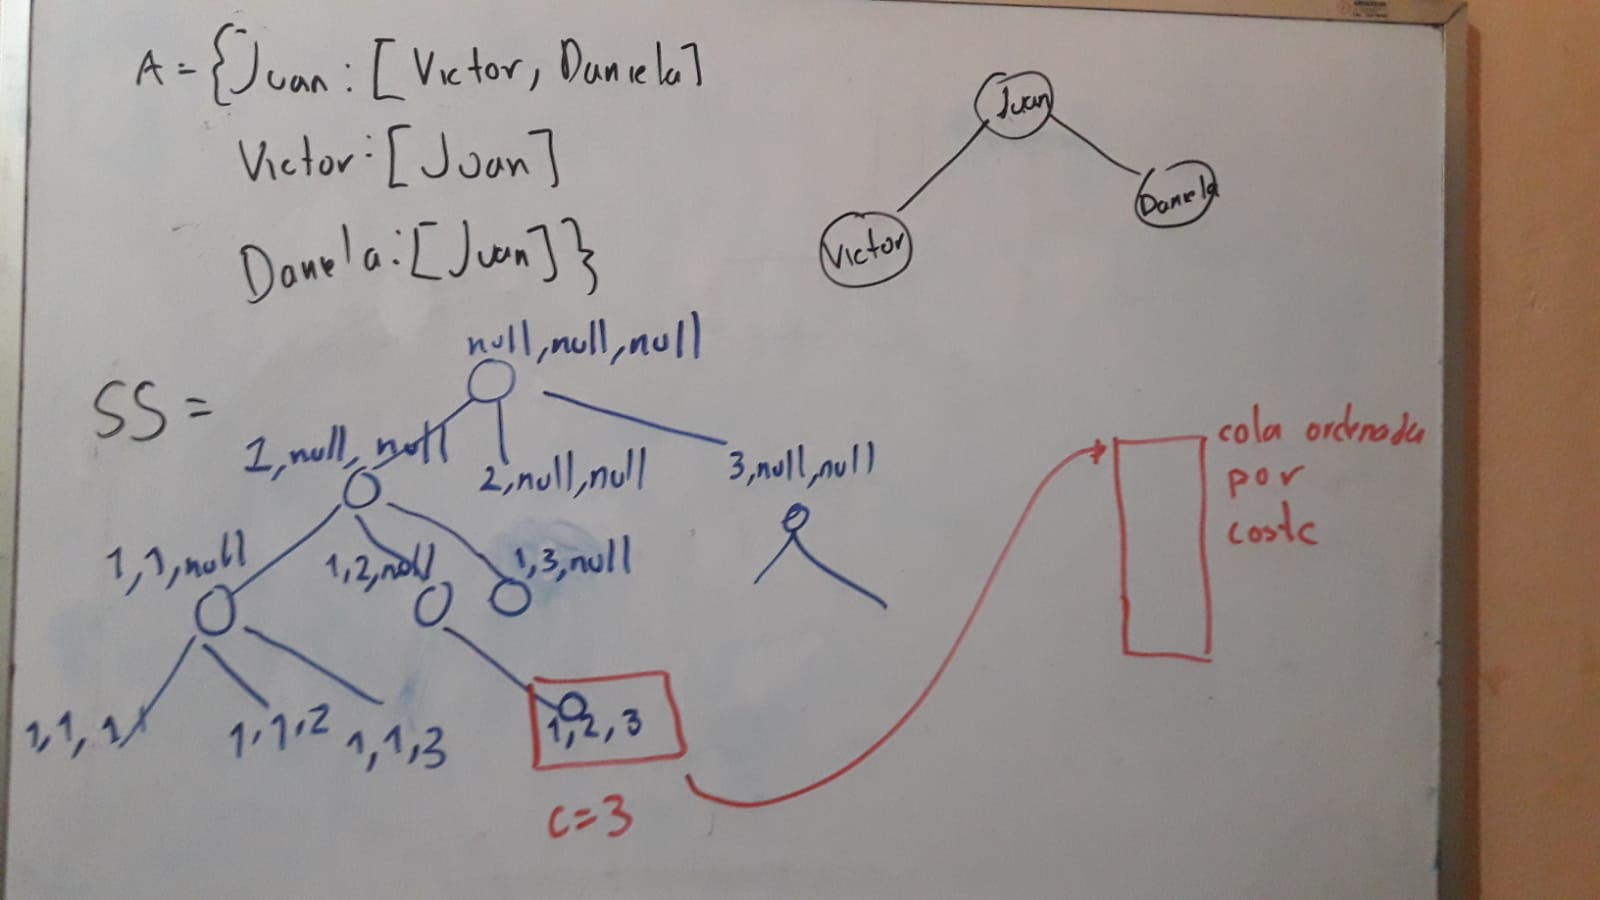 A = {Juan : [Victor, Daniela]
Victor : [Juan]
Daniela : [Juan]}
Juan
Victor
Daniela
SS =
null, null, null
1, null, null
2, null, null
3, null, null
1, 1, null
1, 2, null
1, 3, null
1, 1, 1
1, 1, 2
1, 1, 3
1, 2, 3
c = 3
cola ordenada
por
coste